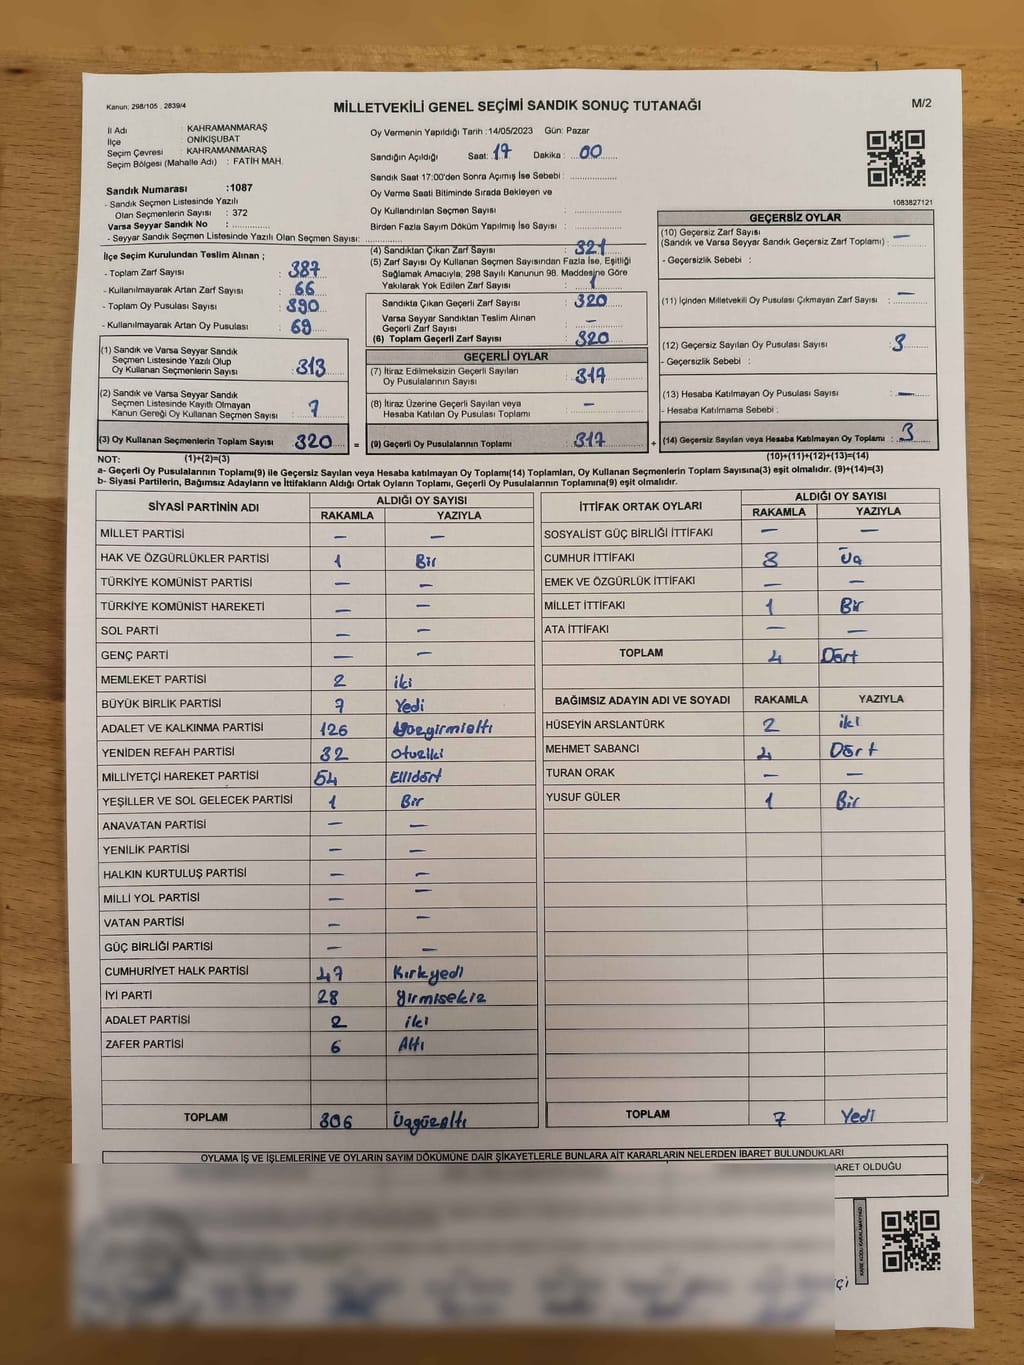 Kanun; 298/105 , 2839/4
MİLLETVEKİLİ GENEL SEÇİMİ SANDIK SONUÇ TUTANAĞI
M/2
İl Adı KAHRAMANMARAŞ
İlçe ONİKİŞUBAT
Seçim Çevresi KAHRAMANMARAŞ
Seçim Bölgesi (Mahalle Adı) : FATİH MAH.
Sandık Numarası :1087
- Sandık Seçmen Listesinde Yazılı
Olan Seçmenlerin Sayısı : 372
Varsa Seyyar Sandık No :
- Seyyar Sandık Seçmen Listesinde Yazılı Olan Seçmen Sayısı:
Oy Vermenin Yapıldığı Tarih :14/05/2023 Gün: Pazar
Sandığın Açıldığı Saat: 17 Dakika : 00
Sandık Saat 17:00'den Sonra Açımış İse Sebebi :
Oy Verme Saati Bitiminde Sırada Bekleyen ve
Oy Kullandırılan Seçmen Sayısı :
Birden Fazla Sayım Döküm Yapılmış İse Sayısı :
1083827121
İlçe Seçim Kurulundan Teslim Alınan ;
- Toplam Zarf Sayısı : 387
- Kullanılmayarak Artan Zarf Sayısı : 66
- Toplam Oy Pusulası Sayısı : 390
- Kullanılmayarak Artan Oy Pusulası : 69
(1) Sandık ve Varsa Seyyar Sandık
Seçmen Listesinde Yazılı Olup
Oy Kullanan Seçmenlerin Sayısı : 313
(2) Sandık ve Varsa Seyyar Sandık
Seçmen Listesinde Kayıtlı Olmayan
Kanun Gereği Oy Kullanan Seçmen Sayısı : 7
(3) Oy Kullanan Seçmenlerin Toplam Sayısı : 320
(4) Sandıktan Çıkan Zarf Sayısı : 321
(5) Zarf Sayısı Oy Kullanan Seçmen Sayısından Fazla İse, Eşitliği
Sağlamak Amacıyla; 298 Sayılı Kanunun 98. Maddesine Göre
Yakılarak Yok Edilen Zarf Sayısı : 1
Sandıkta Çıkan Geçerli Zarf Sayısı : 320
Varsa Seyyar Sandıktan Teslim Alınan
Geçerli Zarf Sayısı : —
(6) Toplam Geçerli Zarf Sayısı : 320
GEÇERLİ OYLAR
(7) İtiraz Edilmeksizin Geçerli Sayılan
Oy Pusulalarının Sayısı : 317
(8) İtiraz Üzerine Geçerli Sayılan veya
Hesaba Katılan Oy Pusulası Toplamı : —
= (9) Geçerli Oy Pusulalarının Toplamı : 317
GEÇERSİZ OYLAR
(10) Geçersiz Zarf Sayısı
(Sandık ve Varsa Seyyar Sandık Geçersiz Zarf Toplamı) : —
- Geçersizlik Sebebi :
(11) İçinden Milletvekili Oy Pusulası Çıkmayan Zarf Sayısı : —
(12) Geçersiz Sayılan Oy Pusulası Sayısı : 3
- Geçersizlik Sebebi :
(13) Hesaba Katılmayan Oy Pusulası Sayısı : —
- Hesaba Katılmama Sebebi :
+ (14) Geçersiz Sayılan veya Hesaba Katılmayan Oy Toplamı : 3
NOT: (1)+(2)=(3) (10)+(11)+(12)+(13)=(14)
a- Geçerli Oy Pusulalarının Toplamı(9) ile Geçersiz Sayılan veya Hesaba katılmayan Oy Toplamı(14) Toplamları, Oy Kullanan Seçmenlerin Toplam Sayısına(3) eşit olmalıdır. (9)+(14)=(3)
b- Siyasi Partilerin, Bağımsız Adayların ve İttifakların Aldığı Ortak Oyların Toplamı, Geçerli Oy Pusulalarının Toplamına(9) eşit olmalıdır.
SİYASİ PARTİNİN ADI ALDIĞI OY SAYISI
RAKAMLA YAZIYLA
MİLLET PARTİSİ — —
HAK VE ÖZGÜRLÜKLER PARTİSİ 1 Bir
TÜRKİYE KOMÜNİST PARTİSİ — —
TÜRKİYE KOMÜNİST HAREKETİ — —
SOL PARTİ — —
GENÇ PARTİ — —
MEMLEKET PARTİSİ 2 iki
BÜYÜK BİRLİK PARTİSİ 7 Yedi
ADALET VE KALKINMA PARTİSİ 126 Yüzyirmialtı
YENİDEN REFAH PARTİSİ 32 Otuziki
MİLLİYETÇİ HAREKET PARTİSİ 54 Ellidört
YEŞİLLER VE SOL GELECEK PARTİSİ 1 Bir
ANAVATAN PARTİSİ — —
YENİLİK PARTİSİ — —
HALKIN KURTULUŞ PARTİSİ — —
MİLLİ YOL PARTİSİ — —
VATAN PARTİSİ — —
GÜÇ BİRLİĞİ PARTİSİ — —
CUMHURİYET HALK PARTİSİ 47 Kırkyedi
İYİ PARTİ 28 Yirmisekiz
ADALET PARTİSİ 2 iki
ZAFER PARTİSİ 6 Altı
TOPLAM 306 Üçyüzaltı
İTTİFAK ORTAK OYLARI ALDIĞI OY SAYISI
RAKAMLA YAZIYLA
SOSYALİST GÜÇ BİRLİĞİ İTTİFAKI — —
CUMHUR İTTİFAKI 3 Üç
EMEK VE ÖZGÜRLÜK İTTİFAKI — —
MİLLET İTTİFAKI 1 Bir
ATA İTTİFAKI — —
TOPLAM 4 Dört
BAĞIMSIZ ADAYIN ADI VE SOYADI RAKAMLA YAZIYLA
HÜSEYİN ARSLANTÜRK 2 iki
MEHMET SABANCI 4 Dört
TURAN ORAK — —
YUSUF GÜLER 1 Bir
TOPLAM 7 Yedi
OYLAMA İŞ VE İŞLEMLERİNE VE OYLARIN SAYIM DÖKÜMÜNE DAİR ŞİKAYETLERLE BUNLARA AİT KARARLARIN NELERDEN İBARET BULUNDUKLARI
BARET OLDUĞU